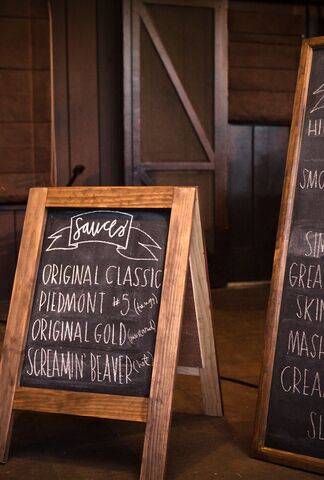 Sauces
ORIGINAL CLASSIC
PIEDMONT #5 (tangy)
ORIGINAL GOLD (mustard)
SCREAMIN' BEAVER (hot)
HI
SMO
SIM
GREA
SKIN
MASH
CREA
SL